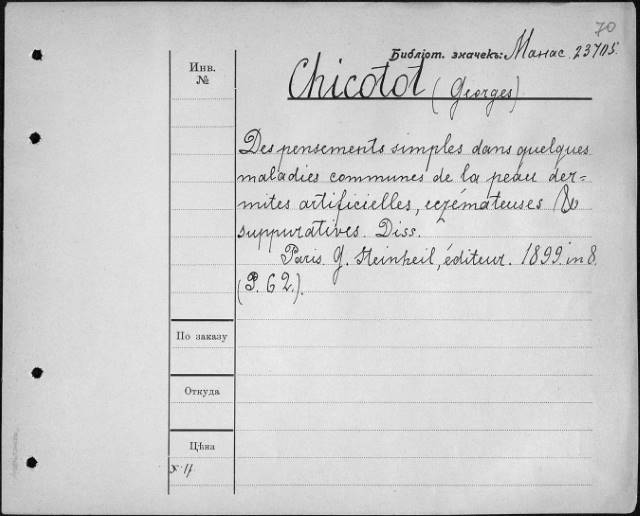 70
Библіот. значекъ: Манас. 23705.
Инв. №
Chicotot (Georges)
Des pensements simples dans quelques
maladies communes de la peau der-
mites artificielles, eczémateuses &
suppuratives. Diss.
Paris. G. Steinheil, éditeur. 1899. in 8.
(P. 62.).
По заказу
Откуда
Цѣна